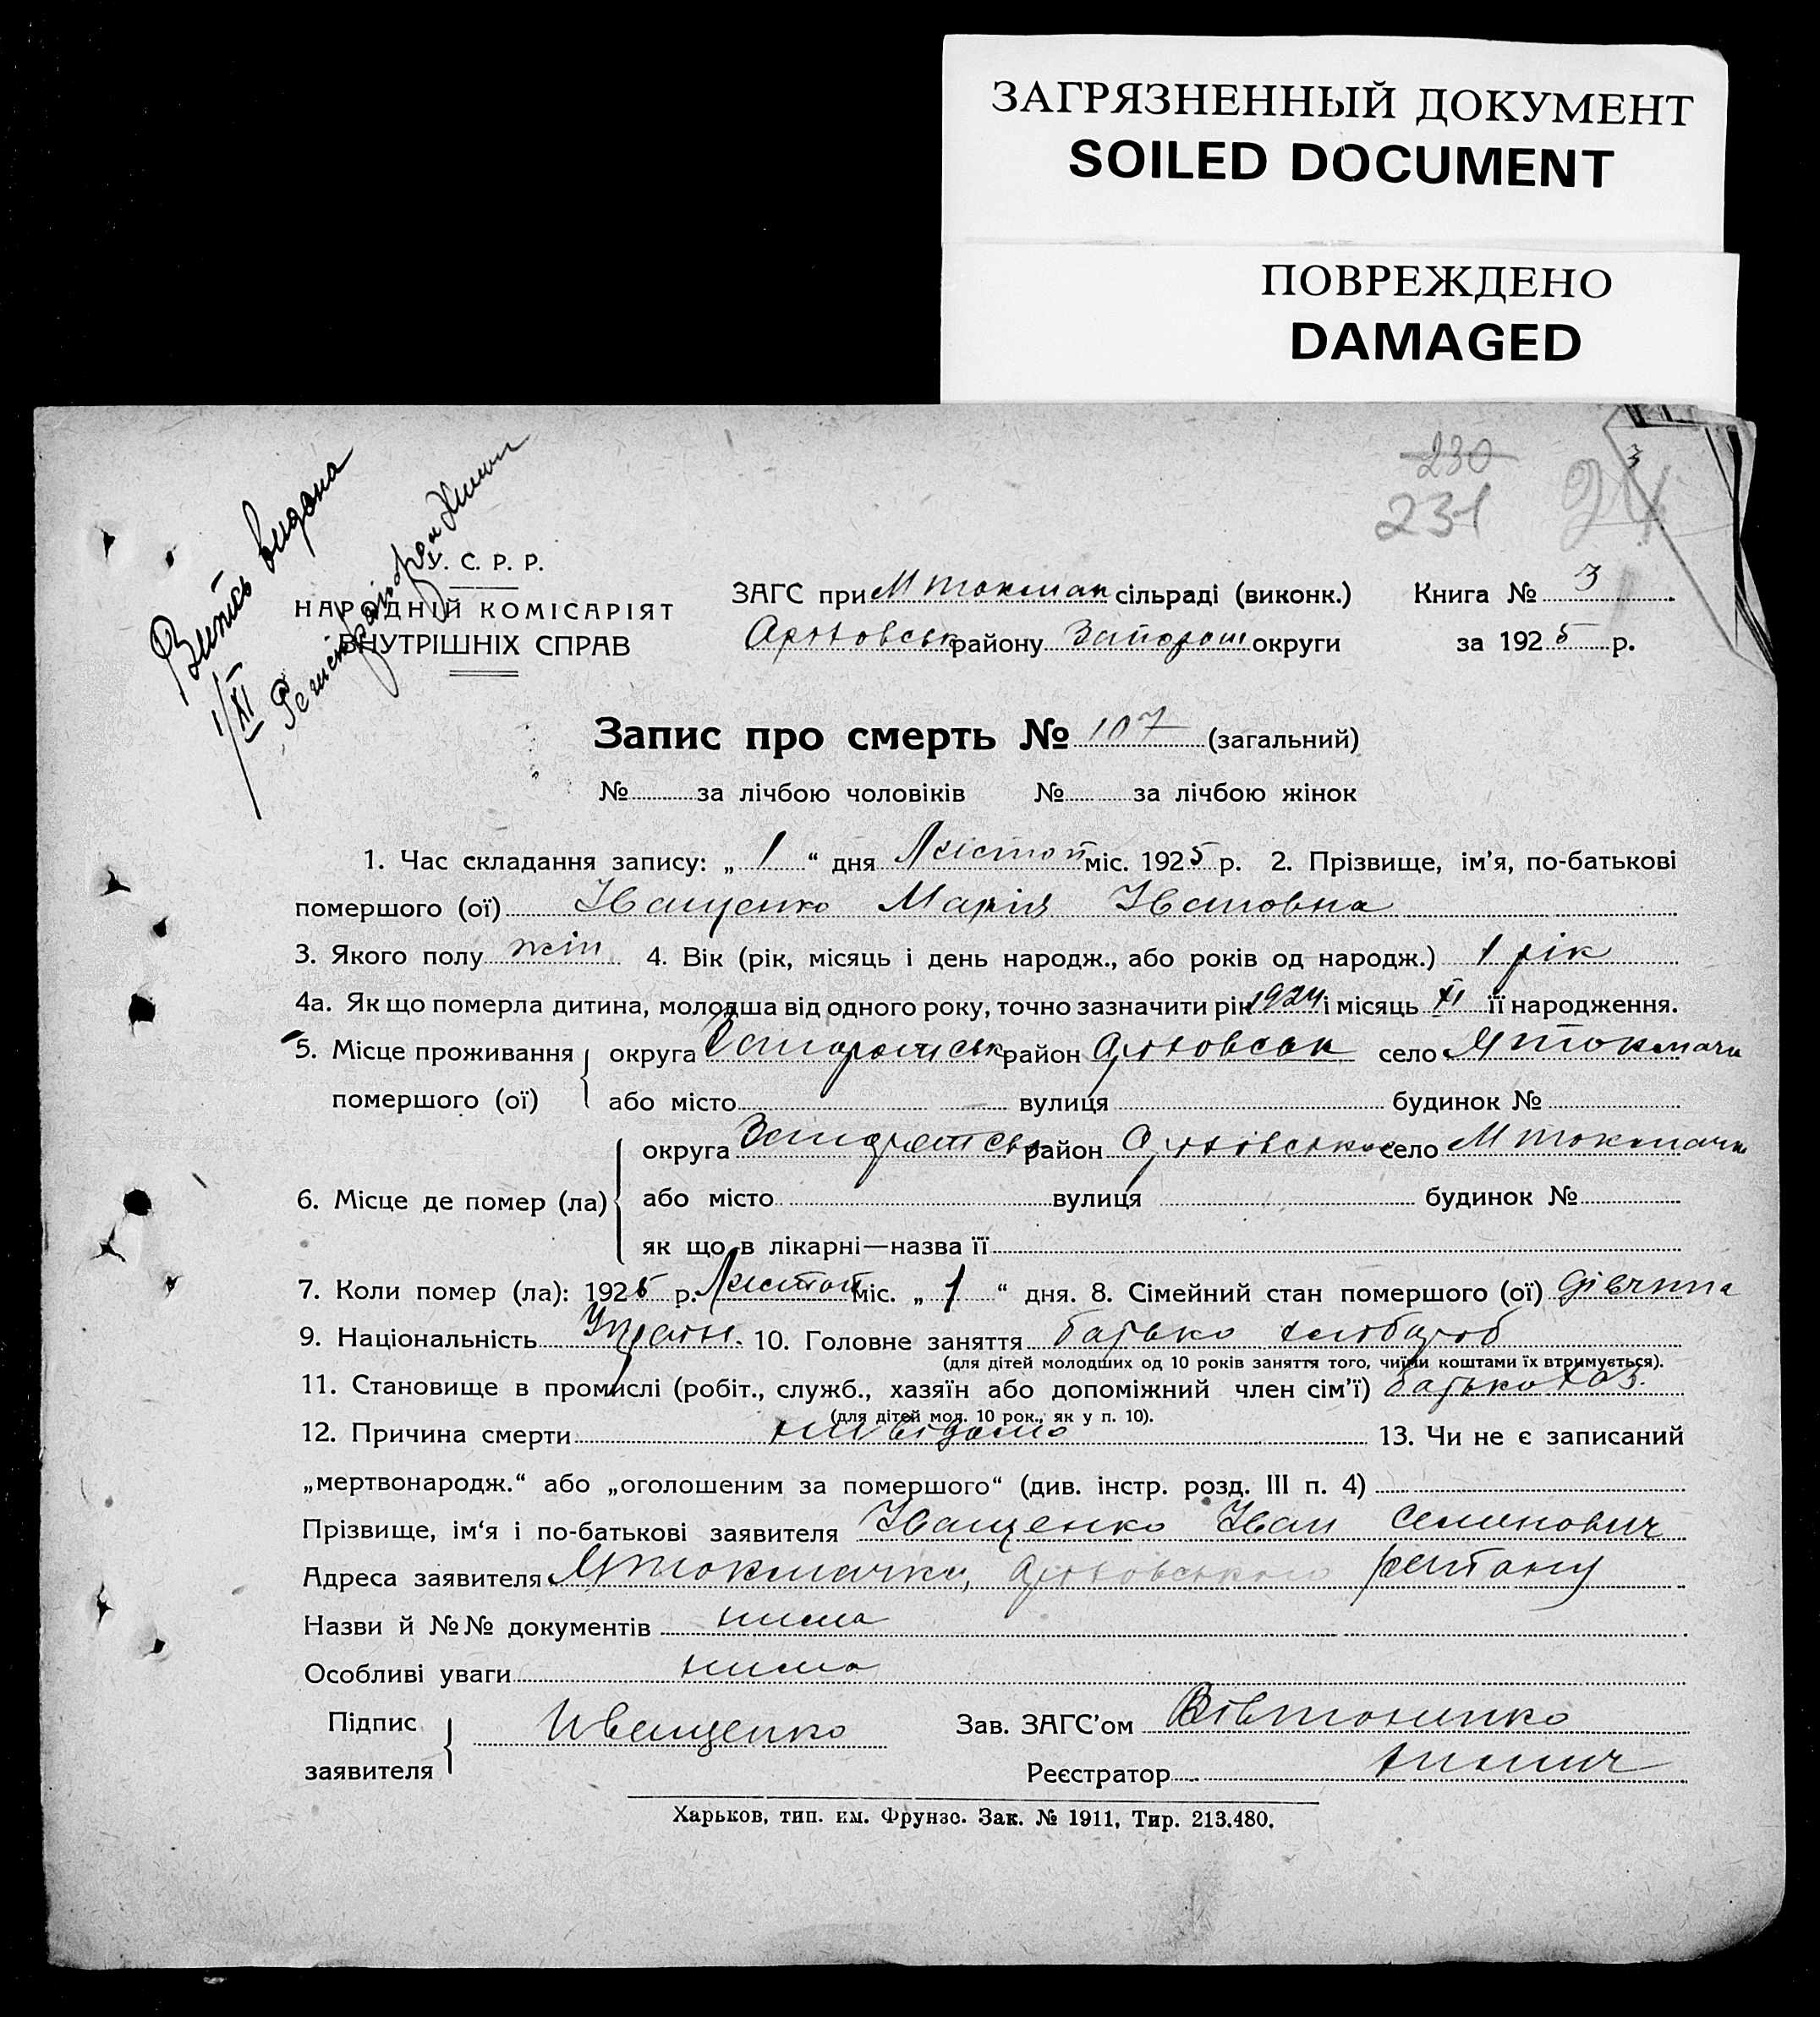 ЗАГРЯЗНЕННЫЙ ДОКУМЕНТ
SOILED DOCUMENT
ПОВРЕЖДЕНО
DAMAGED
230
231
3
Витяг видана
1/XI
У. С. Р. Р.
НАРОДНІЙ КОМІСАРІЯТ
ВНУТРІШНІХ СПРАВ
ЗАГС при М токмач сільраді (виконк.) Книга № 3
Оріховськ району Запорош округи за 1925 р.
Запис про смерть № 107 (загальний)
№ за лічбою чоловіків № за лічбою жінок
1. Час складання запису: „ 1 “ дня Листоп міс. 1925 р. 2. Прізвище, ім’я, по-батькові
помершого (ої) Іващенко Марія Івановна
3. Якого полу жін 4. Вік (рік, місяць і день народж., або років од народж.) 1 рік
4а. Як що померла дитина, молодша від одного року, точно зазначити рік 1924 і місяць XI її народження.
5. Місце проживання округа Запорошськ район Оріховськ село М токмачк
помершого (ої) або місто вулиця будинок №
округа Запорошськ район Оріховсько село М токмачк
6. Місце де помер (ла) або місто вулиця будинок №
як що в лікарні—назва її
7. Коли помер (ла): 1925 р. Листоп міс. „ 1 “ дня. 8. Сімейний стан помершого (ої) дівчина
9. Національність Украін. 10. Головне заняття батько хлібороб
(для дітей молодших од 10 років заняття того, чиїми коштами їх втримується).
11. Становище в промислі (робіт., служб., хазяїн або допоміжний член сім’ї) батько хаз.
(для дітей мол. 10 рок., як у п. 10).
12. Причина смерти невідомо 13. Чи не є записаний
„мертвонародж.“ або „оголошеним за помершого“ (див. інстр. розд. III п. 4)
Прізвище, ім‘я і по-батькові заявителя Іващенко Іван Семинович
Адреса заявителя М токмачка, Оріховського району
Назви й №№ документів нима
Особливі уваги нима
Підпис заявителя Иващенко Зав. ЗАГС’ом
Реєстратор
Харьков, тип. им. Фрунзе. Зак. № 1911, Тир. 213.480.